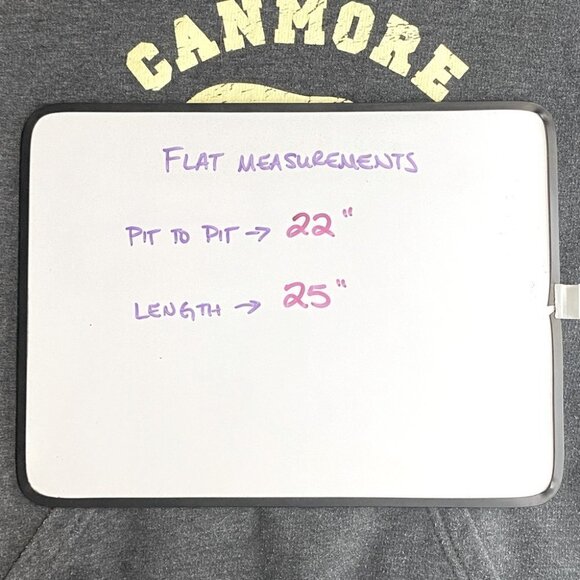 CANMORE
FLAT MEASUREMENTS
PIT TO PIT → 22"
LENGTH → 25"